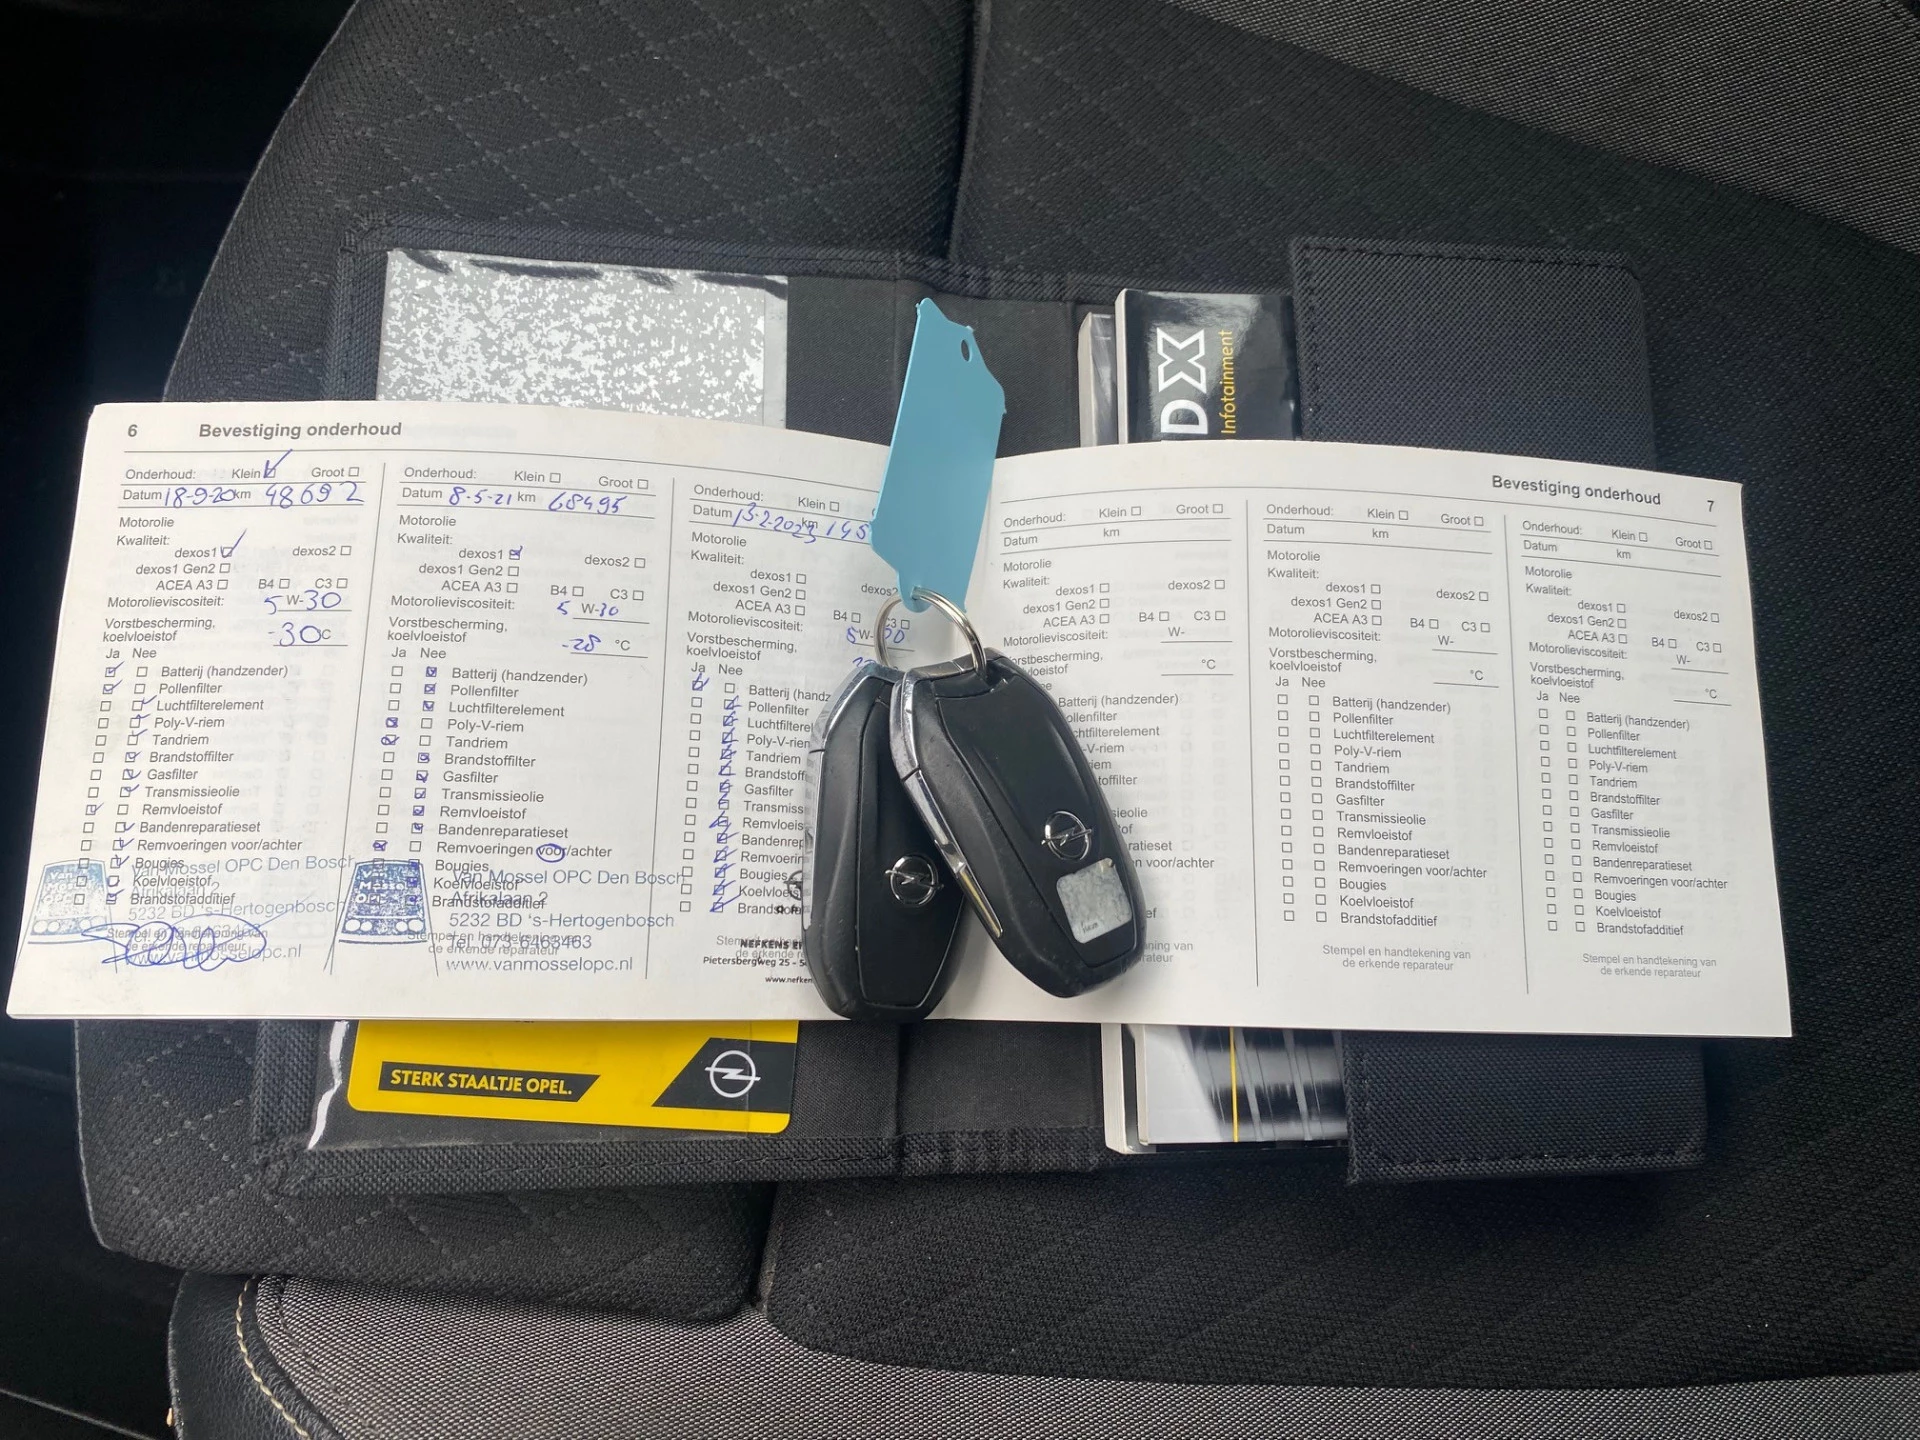 DX
Infotainment
6 Bevestiging onderhoud
Onderhoud: Klein Groot
Datum 18-9-20 km 48692
Motorolie
Kwaliteit:
dexos1 dexos2
dexos1 Gen2
ACEA A3 B4 C3
Motorolieviscositeit: 5 W-30
Vorstbescherming,
koelvloeistof -30 C
Ja Nee
Batterij (handzender)
Pollenfilter
Luchtfilterelement
Poly-V-riem
Tandriem
Brandstoffilter
Gasfilter
Transmissieolie
Remvloeistof
Bandenreparatieset
Remvoeringen voor/achter
Bougies
Koelvloeistof
Brandstofadditief
Van Mossel OPC Den Bosch
Afrikalaan 2
5232 BD 's-Hertogenbosch
www.vanmosselopc.nl
Onderhoud: Klein Groot
Datum 8-5-21 km 68495
Motorolie
Kwaliteit:
dexos1 dexos2
dexos1 Gen2
ACEA A3 B4 C3
Motorolieviscositeit: 5 W-30
Vorstbescherming,
koelvloeistof -28 °C
Ja Nee
Batterij (handzender)
Pollenfilter
Luchtfilterelement
Poly-V-riem
Tandriem
Brandstoffilter
Gasfilter
Transmissieolie
Remvloeistof
Bandenreparatieset
Remvoeringen voor/achter
Bougies
Koelvloeistof
Brandstofadditief
Van Mossel OPC Den Bosch
Afrikalaan 2
5232 BD 's-Hertogenbosch
Tel. 073-6463463
www.vanmosselopc.nl
Stempel en handtekening van
de erkende reparateur
Onderhoud: Klein
Datum 13-2-2023 km 145
Motorolie
Kwaliteit:
dexos1
dexos1 Gen2
ACEA A3 B4 C3
Motorolieviscositeit: 5 W-30
Vorstbescherming,
koelvloeistof
Ja Nee
Batterij
Pollenfilter
Tandriem
Gasfilter
NEFKENS
Pietersbergweg 25
Bevestiging onderhoud 7
Onderhoud: Klein Groot
Datum km
Motorolie
Kwaliteit:
dexos1 dexos2
dexos1 Gen2
ACEA A3 B4 C3
Motorolieviscositeit: W-
°C
Onderhoud: Klein Groot
Datum km
Motorolie
Kwaliteit:
dexos1 dexos2
dexos1 Gen2
ACEA A3 B4 C3
Motorolieviscositeit: W-
Vorstbescherming,
koelvloeistof °C
Ja Nee
Batterij (handzender)
Pollenfilter
Luchtfilterelement
Poly-V-riem
Tandriem
Brandstoffilter
Gasfilter
Transmissieolie
Remvloeistof
Bandenreparatieset
Remvoeringen voor/achter
Bougies
Koelvloeistof
Brandstofadditief
Stempel en handtekening van
de erkende reparateur
Onderhoud: Klein Groot
Datum km
Motorolie
Kwaliteit:
dexos1 dexos2
dexos1 Gen2
ACEA A3 B4 C3
Motorolieviscositeit: W-
Vorstbescherming,
koelvloeistof °C
Ja Nee
Batterij (handzender)
Pollenfilter
Luchtfilterelement
Poly-V-riem
Tandriem
Brandstoffilter
Gasfilter
Transmissieolie
Remvloeistof
Bandenreparatieset
Remvoeringen voor/achter
Bougies
Koelvloeistof
Brandstofadditief
Stempel en handtekening van
de erkende reparateur
STERK STAALTJE OPEL.